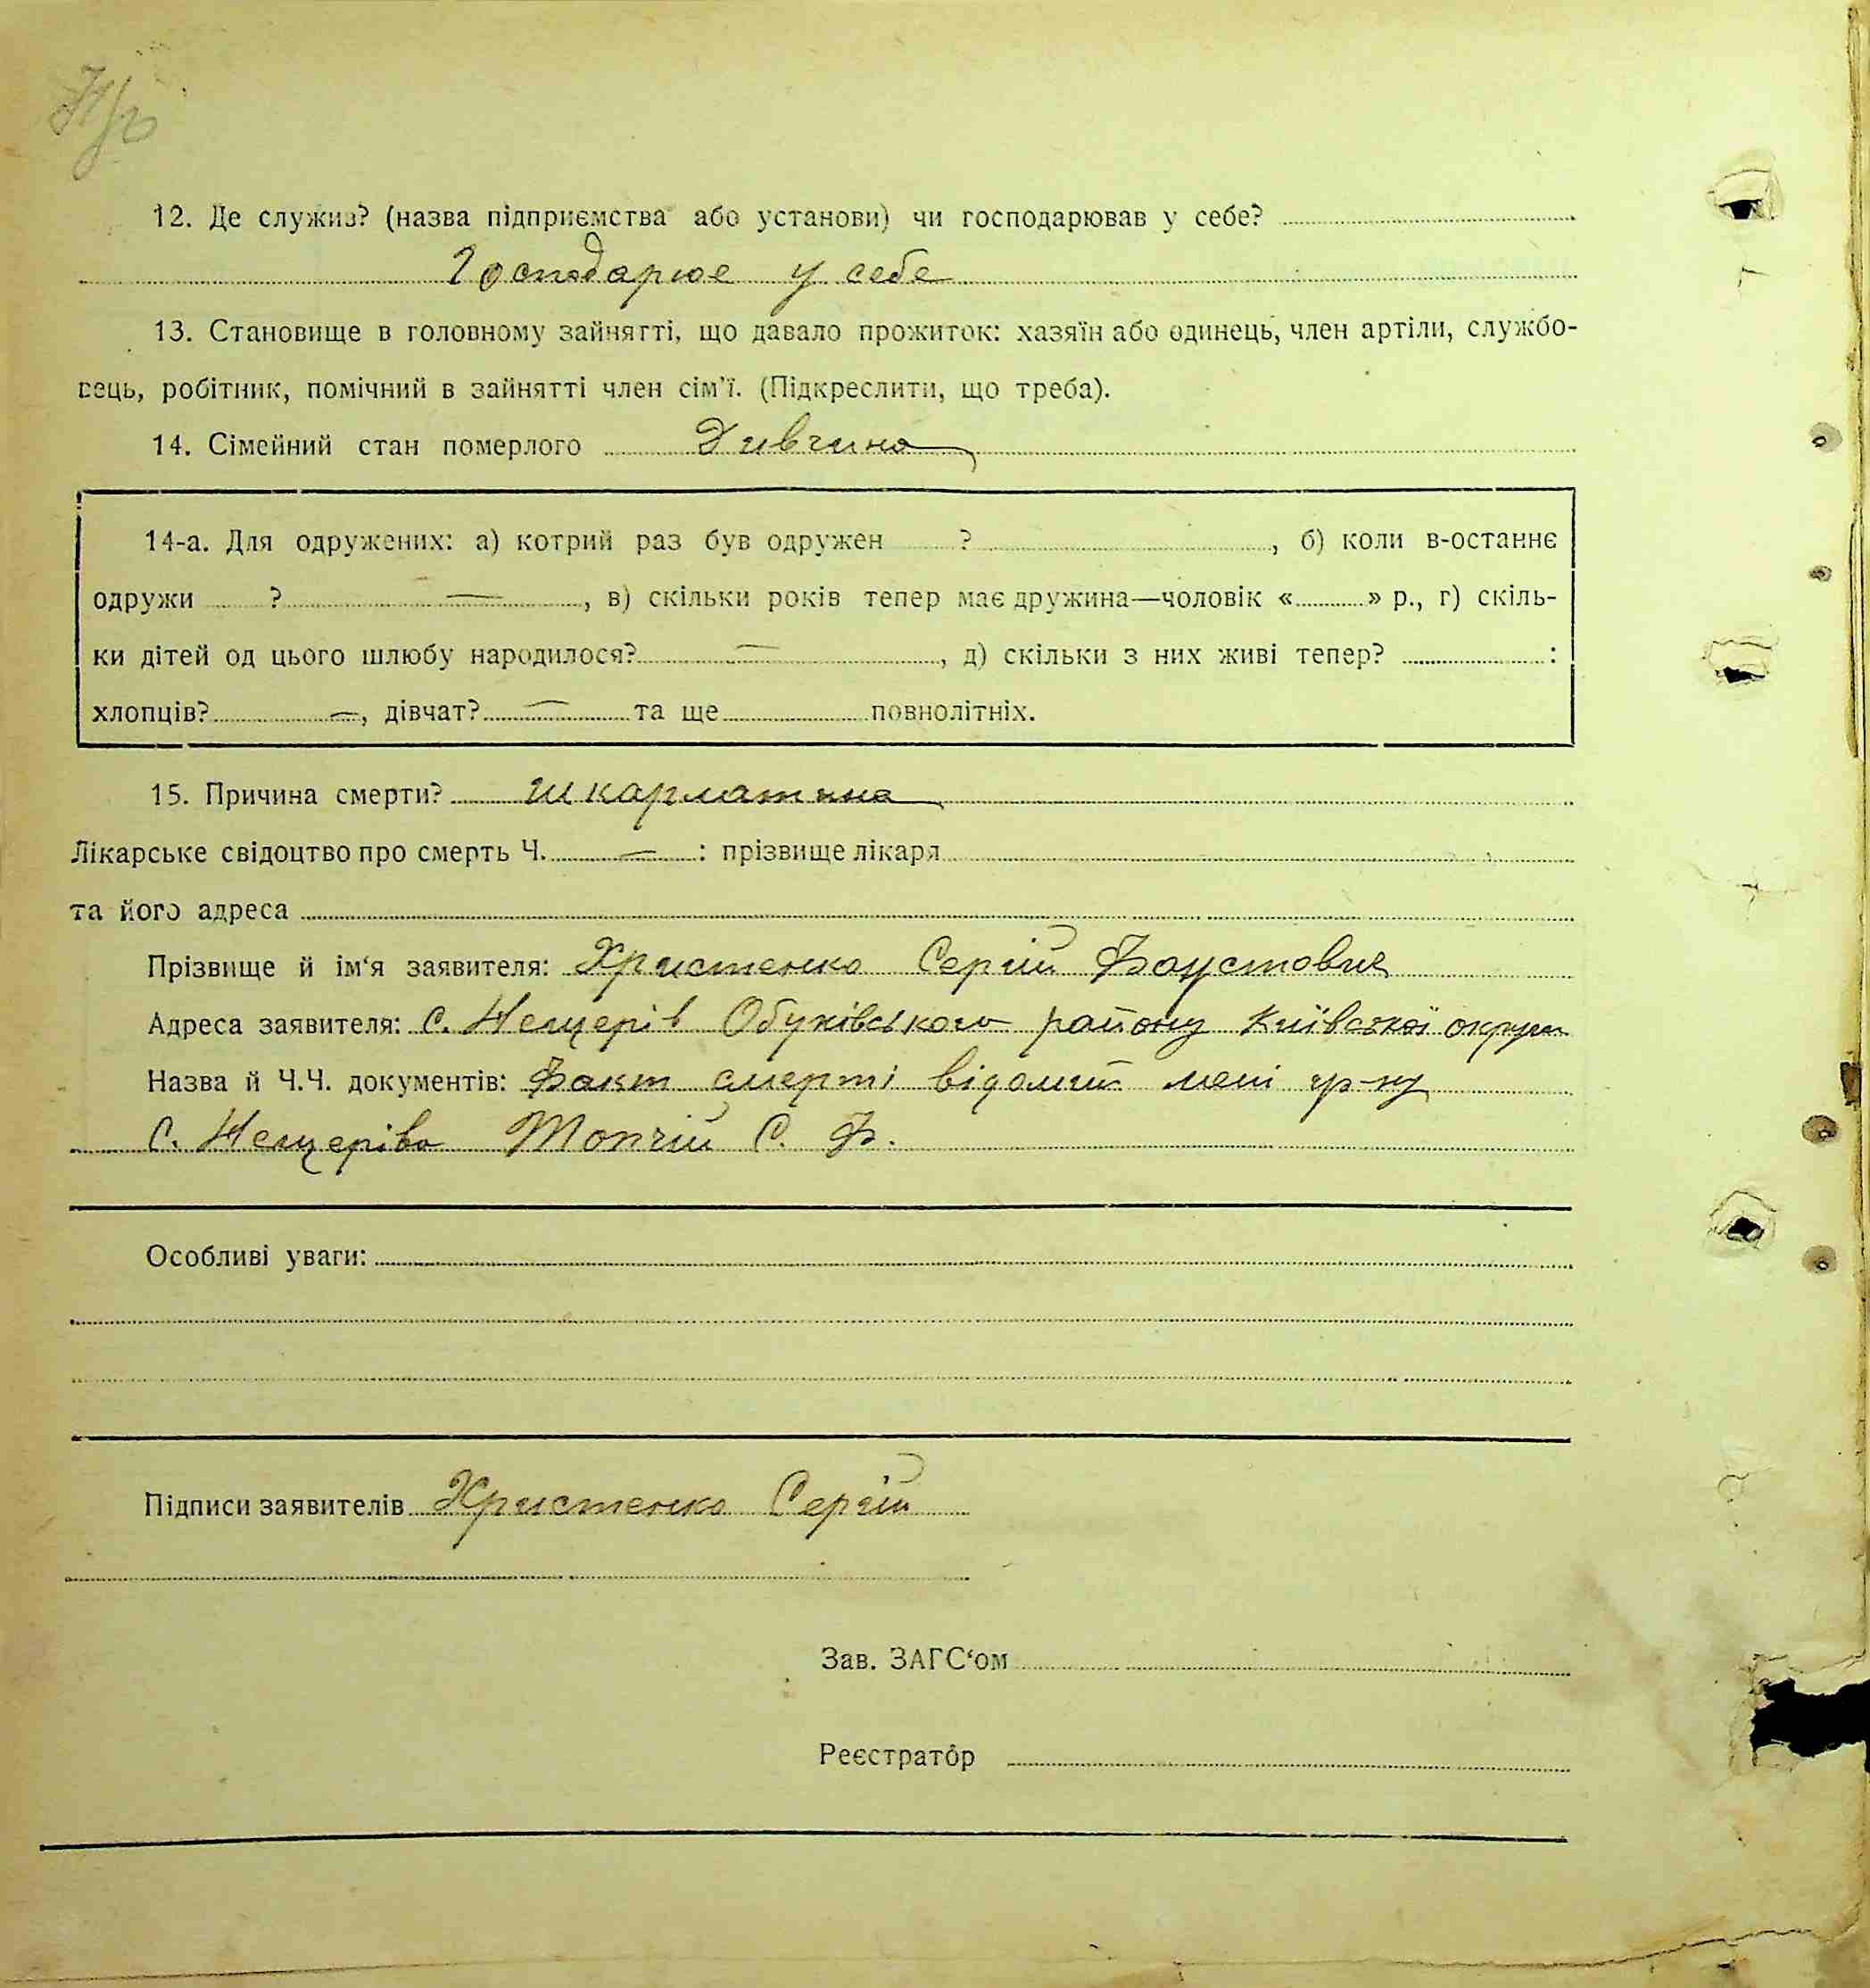 12. Де служив? (назва підприємства або установи) чи господарював у себе?
Господарює у себе
13. Становище в головному зайнятті, що давало прожиток: хазяїн або одинець, член артіли, службо-
вець, робітник, помічний в зайнятті член сім'ї. (Підкреслити, що треба).
14. Сімейний стан померлого Дивчина
14-а. Для одружених: а) котрий раз був одружен ? , б) коли в-останнє
одружи ? — , в) скільки років тепер має дружина—чоловік « » р., г) скіль-
ки дітей од цього шлюбу народилося? — , д) скільки з них живі тепер? :
хлопців? —, дівчат? — та ще повнолітніх.
15. Причина смерти? шкарлатина
Лікарське свідоцтво про смерть Ч. — : прізвище лікаря
та його адреса
Прізвище й ім'я заявителя: Христенко Сергій Фаустович
Адреса заявителя: С. Нещерів Обухівського району Київської округи
Назва й Ч.Ч. документів: Факт смерті відомий мені гр-ну
С. Нещерів Топчій С. Ф.
Особливі уваги:
Підписи заявителів Христенко Сергій
Зав. ЗАГС'ом
Реєстратор